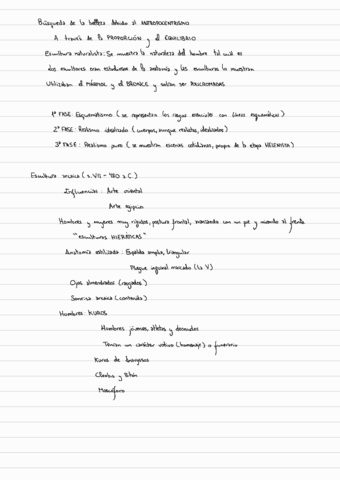 Búsqueda de la belleza debido al ANTROPOCENTRISMO
A través de la PROPORCIÓN y el EQUILIBRIO
Escultura naturalista: Se muestra la naturaleza del hombre tal cual es
Los escultores eran estudiosos de la anatomía y las esculturas lo muestran
Utilizaban el MÁRMOL y el BRONCE y solían ser POLICROMADAS
1ª FASE: Esquematismo (se representan los rasgos esenciales con líneas esquemáticas)
2ª FASE: Realismo idealizado (cuerpos, aunque realistas, idealizados)
3ª FASE: Realismo puro (se muestran escenas cotidianas, propio de la etapa HELENISTA)
Escultura arcaica (s. VII - 480 a.C.)
Influencias: Arte oriental
Arte egipcio
Hombres y mujeres muy rígidos, postura frontal, avanzando con un pie y mirando al frente
"esculturas HIERÁTICAS"
Anatomía estilizada: Espalda amplia, triangular
Pliegue inguinal marcado (la V)
Ojos almendrados (rasgados)
Sonrisa arcaica (contenida)
Hombres: KUROS
Hombres jóvenes, atletas y desnudos
Tenían un carácter votivo (homenaje) o funerario
Kuros de Anavysos
Cleobis y Bitón
Moscóforo